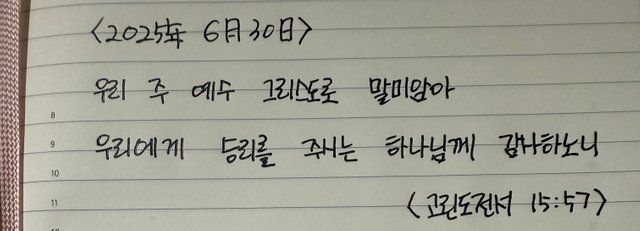 <2025年 6月 30日>
우리 주 예수 그리스도로 말미암아
8
9 우리에게 승리를 주시는 하나님께 감사하노니
10
11 <고린도전서 15:57>